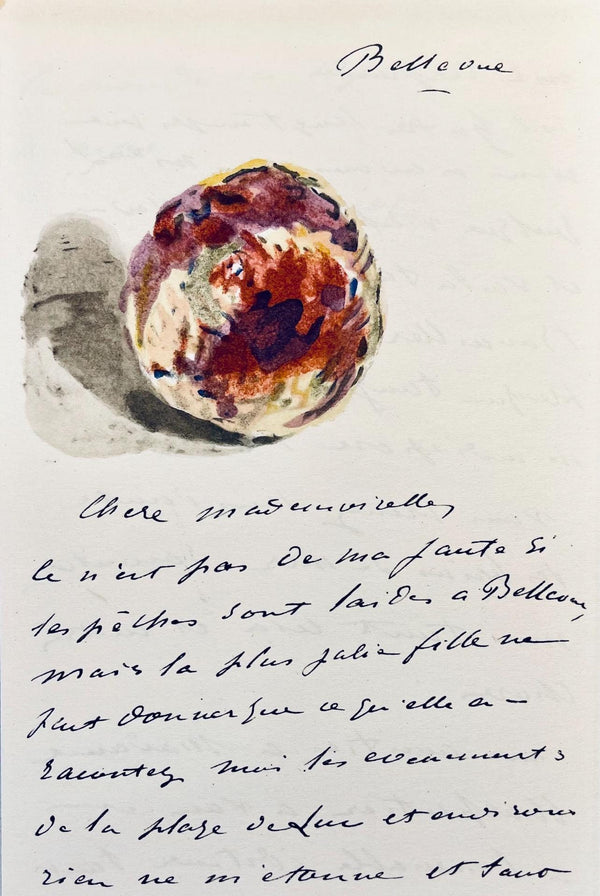 Bellevue
Chere mademoiselle,
Ce n'est pas de ma faute si
les pêches sont laides a Bellevue,
mais la plus jolie fille ne
peut donner que ce qu'elle a –
Racontez moi les evenements
de la plage de Luc et environs
rien ne m'etonne et tout